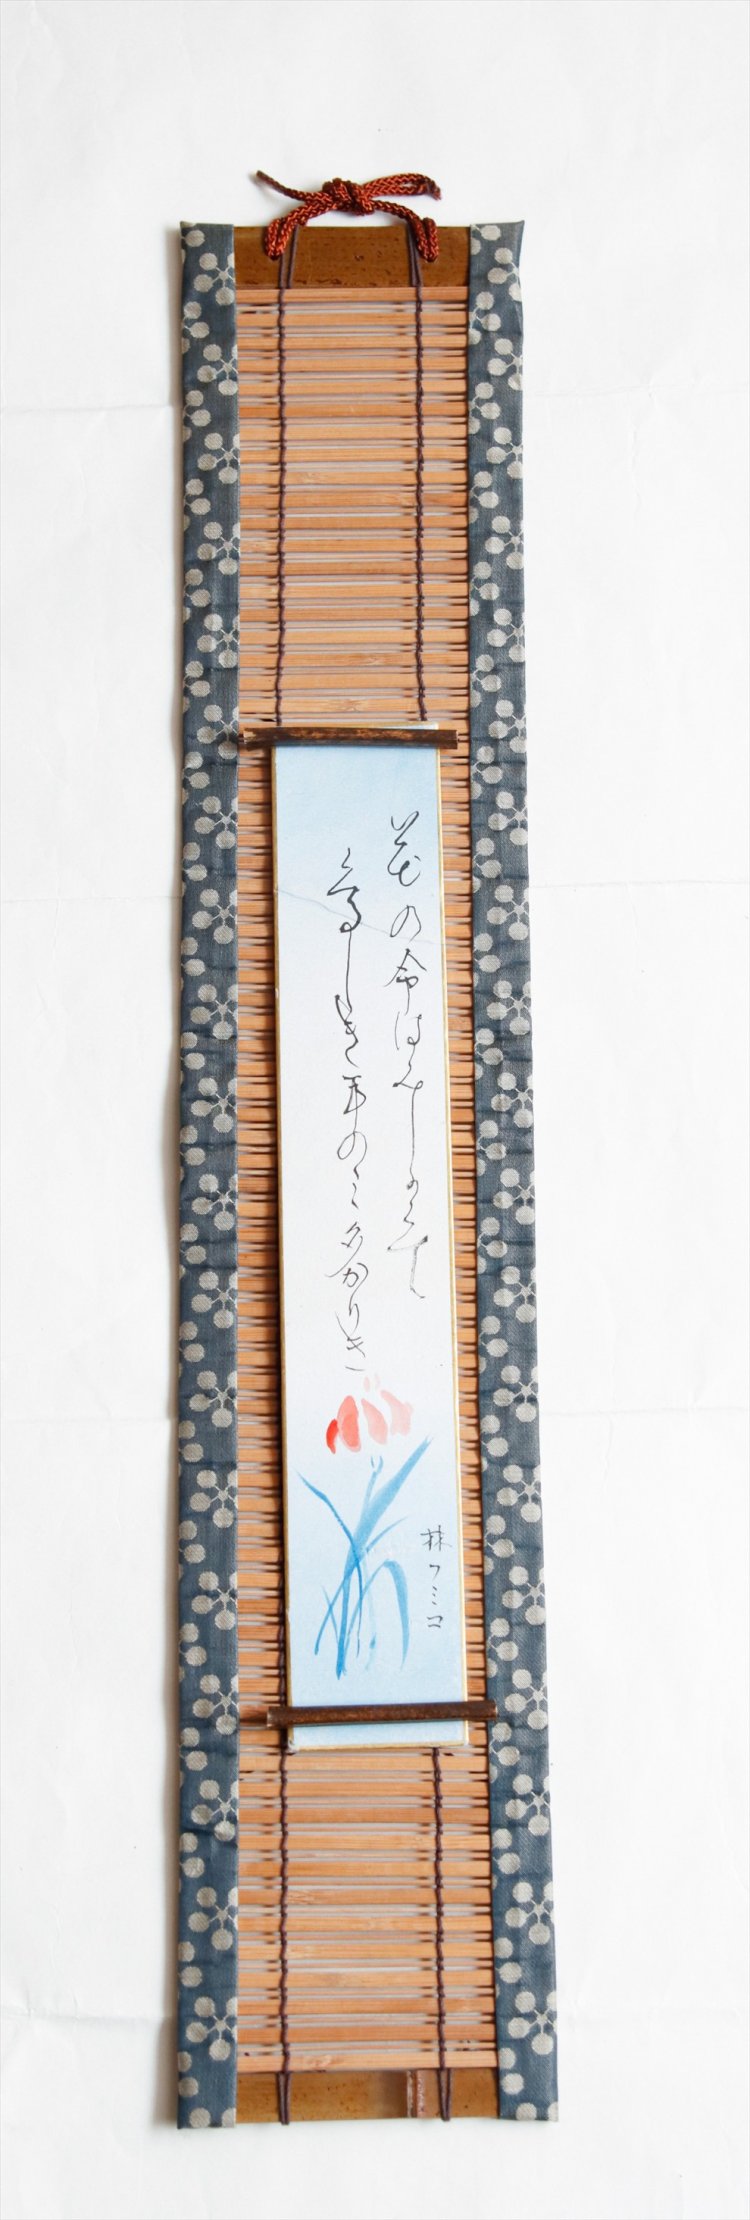 花の命はみじかくて
苦しき事のミ多かりき
林フミコ